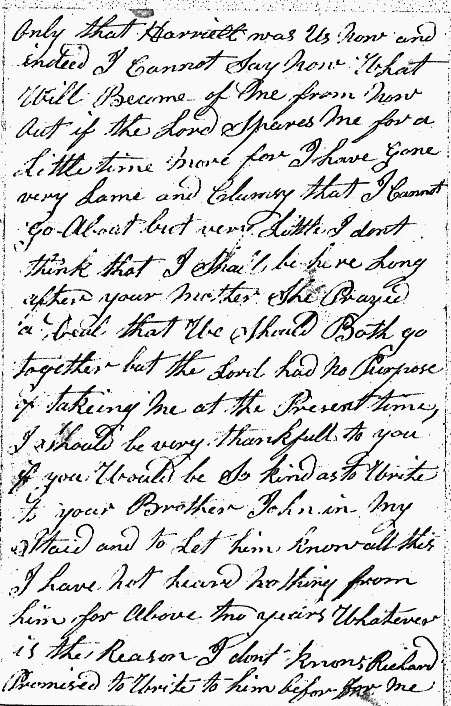 Only that Harriett was Us now and
indeed I Cannot Say now What
Will Become of Me from Now
but if the Lord Spares Me for a
Little time more for I have Gone
very Lame and Clumsy that I Cannot
go About but very Little I dont
think that I Shall be here Long
after your Mother She Prayed
a deal that We Should Both go
together but the Lord had no Purpose
of takeing Me at the Present time,
I should be very thankfull to you
if you Would be So kind as to Write
to your Brother John in My
Staid and to Let him know all this
I have not heard nothing from
him for Above two years Whatever
is the Reason I dont know Richard
Promised to Write to him befor for Me